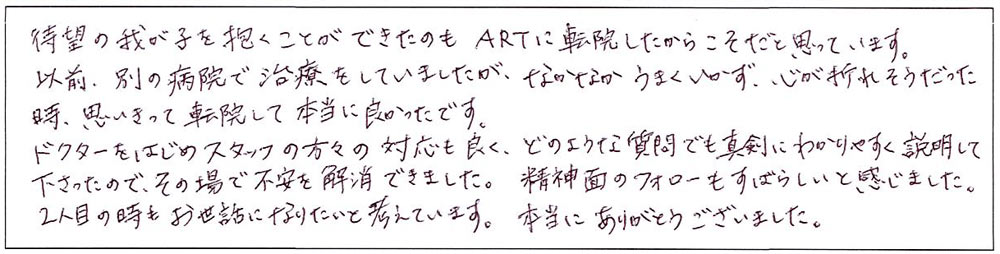 待望の我が子を抱くことができたのも ARTに転院したからこそだと思っています。
以前、別の病院で治療をしていましたが、なかなかうまくいかず、心が折れそうだった
時、思いきって転院して本当に良かったです。
ドクターをはじめスタッフの方々の対応も良く、どのような質問でも真剣にわかりやすく説明して
下さったので、その場で不安を解消できました。 精神面のフォローもすばらしいと感じました。
2人目の時もお世話になりたいと考えています。 本当にありがとうございました。